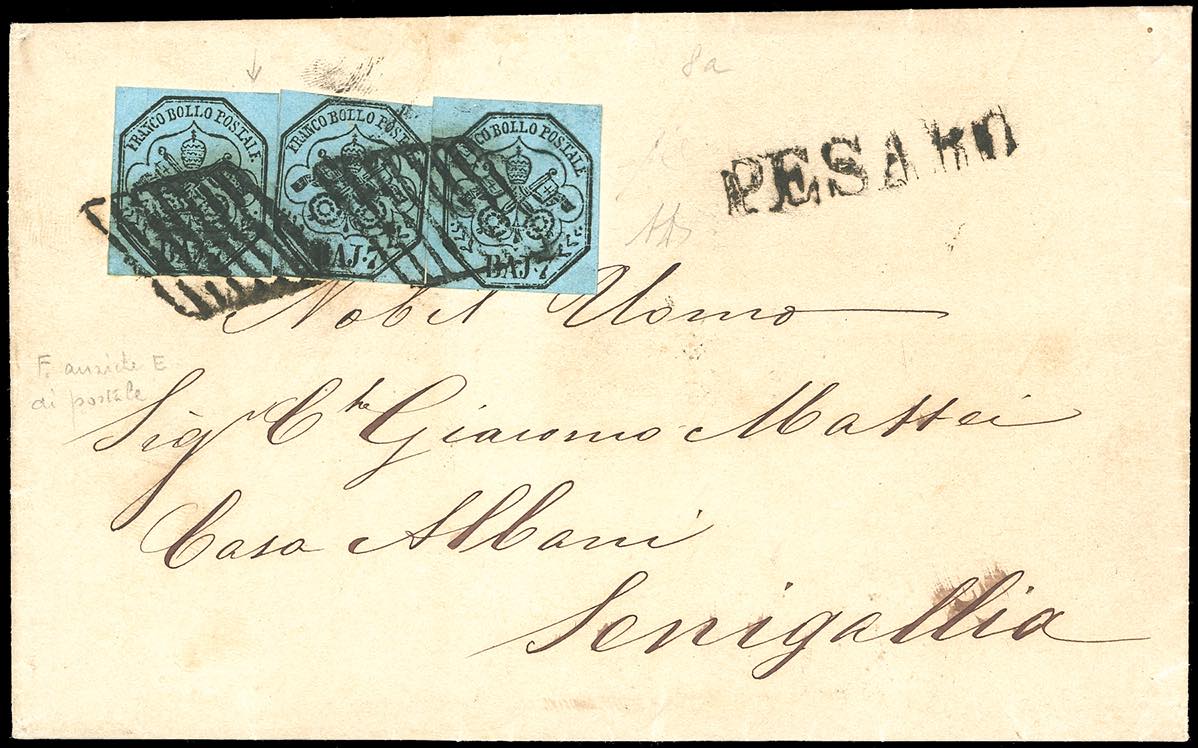 8a
FRANCO BOLLO POSTALE
BAJ
FRANCO BOLLO POSTALE
BAJ. 7
FRANCO BOLLO POSTALE
BAJ. 7
PESARO
Nobil Uomo
F. anziche E
di postale
Sigr Cte Giacomo Mattei
Casa Albani
Senigallia